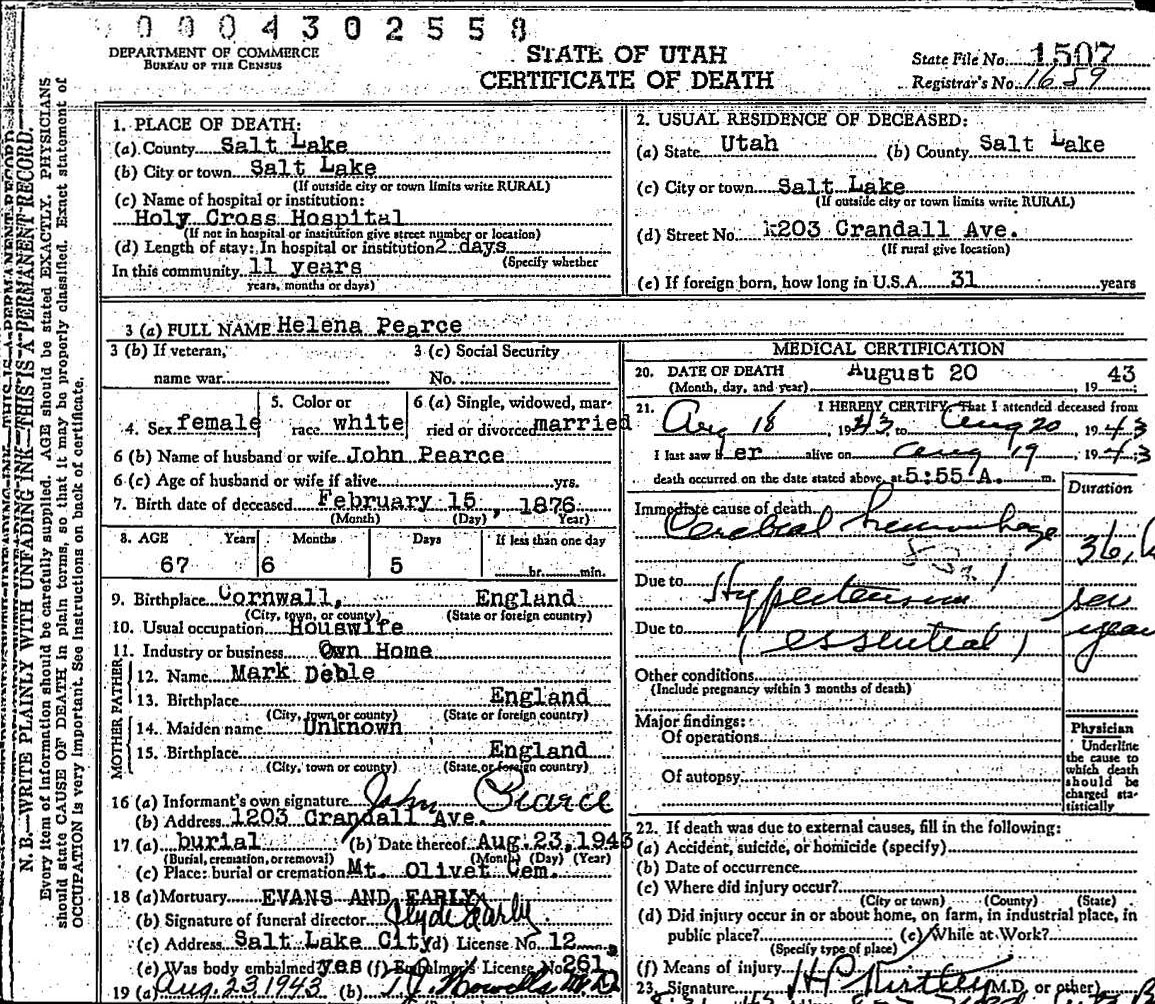 0004302558
DEPARTMENT OF COMMERCE
BUREAU OF THE CENSUS
STATE OF UTAH
CERTIFICATE OF DEATH
State File No. 1507
Registrar's No. 1659
N. B.—WRITE PLAINLY WITH UNFADING INK—THIS IS A PERMANENT RECORD.
Every item of information should be carefully supplied. AGE should be stated EXACTLY. PHYSICIANS
should state CAUSE OF DEATH in plain terms, so that it may be properly classified. Exact statement of
OCCUPATION is very important. See instructions on back of certificate.
1. PLACE OF DEATH:
(a) County Salt Lake
(b) City or town Salt Lake
(If outside city or town limits write RURAL)
(c) Name of hospital or institution:
Holy Cross Hospital
(If not in hospital or institution give street number or location)
(d) Length of stay: In hospital or institution 2 days
(Specify whether
In this community 11 years
years, months or days)
2. USUAL RESIDENCE OF DECEASED:
(a) State Utah (b) County Salt Lake
(c) City or town Salt Lake
(If outside city or town limits write RURAL)
(d) Street No. 1203 Crandall Ave.
(If rural give location)
(e) If foreign born, how long in U.S.A. 31 years
3 (a) FULL NAME Helena Pearce
3 (b) If veteran,
name war
3 (c) Social Security
No.
4. Sex female
5. Color or
race white
6 (a) Single, widowed, mar-
ried or divorced married
6 (b) Name of husband or wife John Pearce
6 (c) Age of husband or wife if alive yrs.
7. Birth date of deceased February 15, 1876
(Month) (Day) (Year)
8. AGE Years Months Days If less than one day
67 6 5 hr. min.
9. Birthplace Cornwall, England
(City, town, or county) (State or foreign country)
10. Usual occupation Houswife
11. Industry or business Own Home
FATHER
12. Name Mark Deble
13. Birthplace England
(City, town or county) (State or foreign country)
MOTHER
14. Maiden name Unknown
15. Birthplace England
(City, town or county) (State or foreign country)
16 (a) Informant's own signature John Pearce
(b) Address 1203 Crandall Ave.
17 (a) burial (b) Date thereof Aug. 23, 1943
(Burial, cremation, or removal) (Month) (Day) (Year)
(c) Place: burial or cremation Mt. Olivet Cem.
18 (a) Mortuary EVANS AND EARLY
(b) Signature of funeral director Clyde Early
(c) Address Salt Lake City (d) License No. 12
(e) Was body embalmed yes (f) Embalmer's License No. 261
19 (a) Aug. 23 1943 (b) T.J. Howells M.D.
MEDICAL CERTIFICATION
20. DATE OF DEATH August 20 1943
(Month, day, and year)
21. I HEREBY CERTIFY, That I attended deceased from
Aug 18, 1943, to Aug 20, 1943
I last saw her alive on Aug 19 1943
death occurred on the date stated above, at 5:55 A. m.
Duration
Immediate cause of death
Cerebral hemorrhage 36
Due to Hypertension sev
Due to (essential) year
Other conditions
(Include pregnancy within 3 months of death)
Major findings:
Of operations
Of autopsy
Physician
Underline
the cause to
which death
should be
charged sta-
tistically
22. If death was due to external causes, fill in the following:
(a) Accident, suicide, or homicide (specify)
(b) Date of occurrence
(c) Where did injury occur?
(City or town) (County) (State)
(d) Did injury occur in or about home, on farm, in industrial place, in
public place? (e) While at Work?
(Specify type of place)
(f) Means of injury
23. Signature HP Kirtley (M.D. or other)